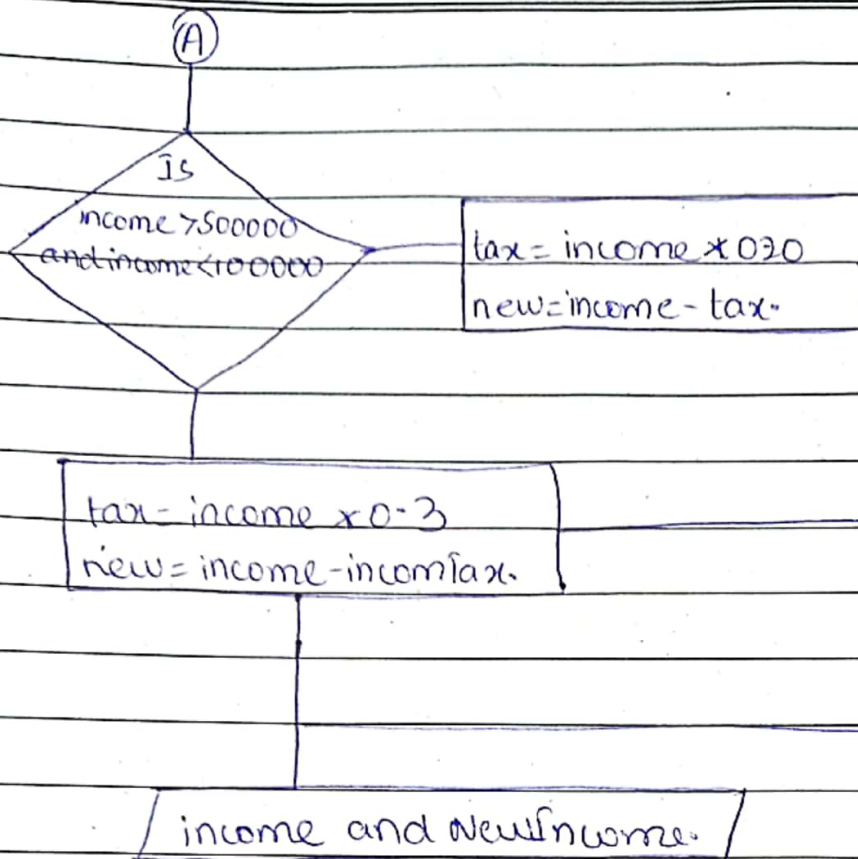 A
Is
income >500000
and income <100000
tax = income * 020
new = income - tax.
tax = income * 0.3
new = income - incomTax.
income and NewIncome.